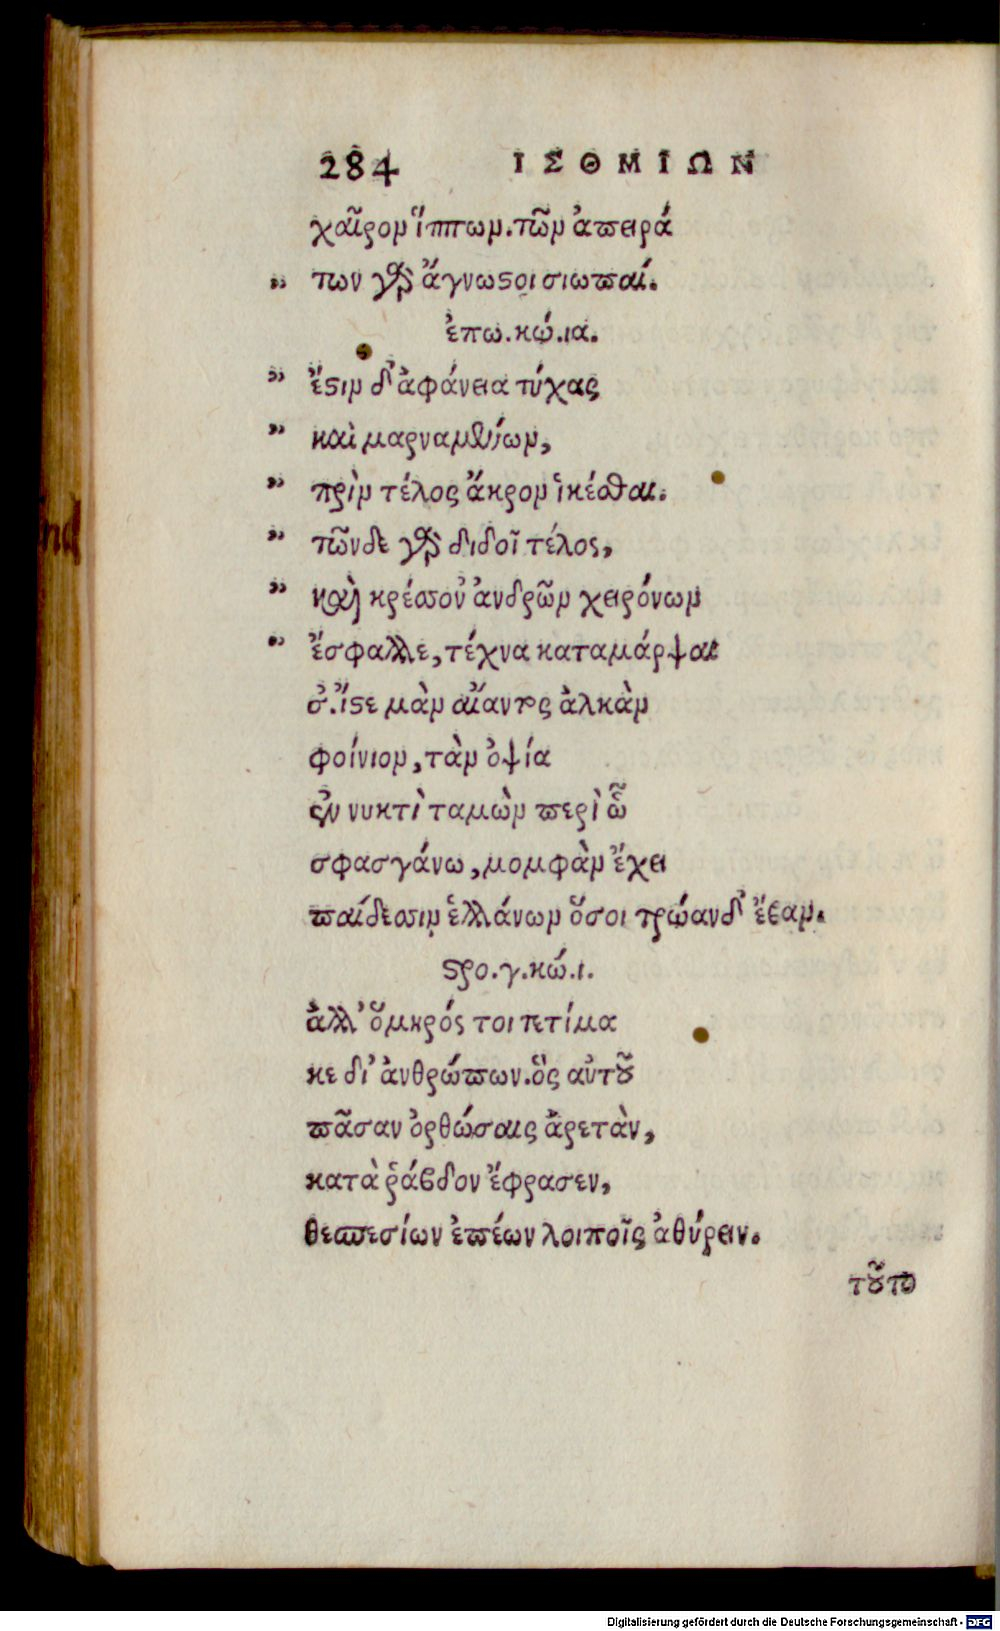 284 ΙΣΘΜΙΩΝ
χαῖρον ἵππων. τῶν ἀπειρά
„ των γὰρ ἄγνωστοι σιωπαί.
ἐπω. κώ. ια.
„ ἔστιν δ' ἀφάνεια τύχας
„ καὶ μαρναμένων,
„ πρὶν τέλος ἄκρον ἱκέσθαι.
„ τῶνδε γὰρ διδοῖ τέλος,
„ καὶ κρέσσον' ἀνδρῶν χειρόνων
„ ἔσφαλλε, τέχνα καταμάρψαι
σ'. ἴστε μὰν αἴαντος ἀλκὰν
φοίνιον, τὰν ὀψία
ἐν νυκτὶ ταμὼν περὶ ὧ
σφασγάνω, μομφὰν ἔχει
παίδεσσιν ἑλλάνων ὅσοι τρώανδ' ἔβαν.
στρο. γ. κώ. ι.
ἀλλ' ὅμηρός τοι τετίμα
κε δι' ἀνθρώπων. ὃς αὐτοῦ
πᾶσαν ὀρθώσαις ἀρετὰν,
κατὰ ῥάβδον ἔφρασεν,
θεσπεσίων ἐπέων λοιποῖς ἀθύρειν.
τοῦτο
Digitalisierung gefördert durch die Deutsche Forschungsgemeinschaft - DFG